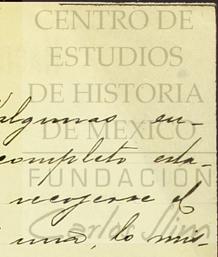 CENTRO DE
ESTUDIOS
DE HISTORIA
DE MÉXICO
FUNDACIÓN
Carlos Slim
algunas en-
completo esta-
recogerse el
una, lo mis-